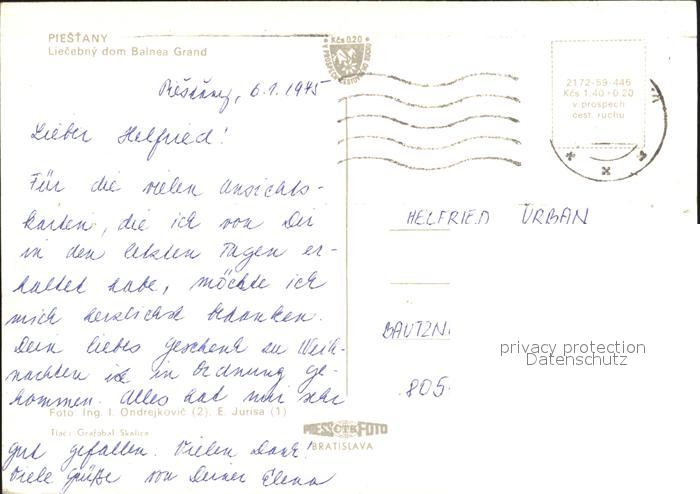 PIEŠŤANY
Liečebný dom Balnea Grand
Kčs 0.20
2172-59-446
Kčs 1,40+0,20
v prospech
cest. ruchu
Piešťany, 6.1.1975
Lieber Helfried!
Für die vielen Ansichts-
karten, die ich von Dir
in den letzten Tagen er-
halten habe, möchte ich
mich herzlichst bedanken.
Dein liebes Geschenk zu Weih-
nachten ist in Ordnung ge-
kommen. Alles hat mir sehr
gut gefallen. Vielen Dank!
Viele Grüße von Deiner Elena
Foto Ing. I. Ondrejkovič (2), E. Jurisa (1)
Tlač: Grafobal Skalica
PRESSFOTO
BRATISLAVA
HELFRIED URBAN
BAUTZN
805
privacy protection
Datenschutz